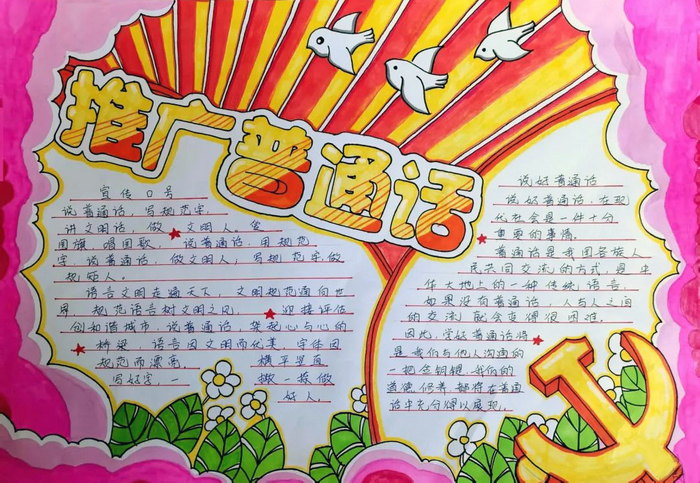 推广普通话
宣传口号
说普通话，写规范字，
讲文明语，做文明人。爱
国旗，唱国歌，说普通话，用规范
字。说普通话，做文明人；写规范字做
规范人。
语言文明走遍天下，文明规范通向世
界。规范语言树文明之风，迎接评估
创和谐城市，说普通话，架起心与心的
桥梁，语言因文明而优美，字体因
规范而漂亮，横平竖直
写好字，一撇一捺做
好人。
说好普通话
说好普通话，在现
代社会是一件十分
重要的事情。
普通话是我国各族人
民共同交流的方式，是中
华大地上的一种传统语言，
如果没有普通话，人与人之间
的交流，就会变得很困难。
因此，学好普通话将
是我们与他人沟通的
一把金钥匙，我们的
道德、修养，都将在普通
话中充分得以展现。